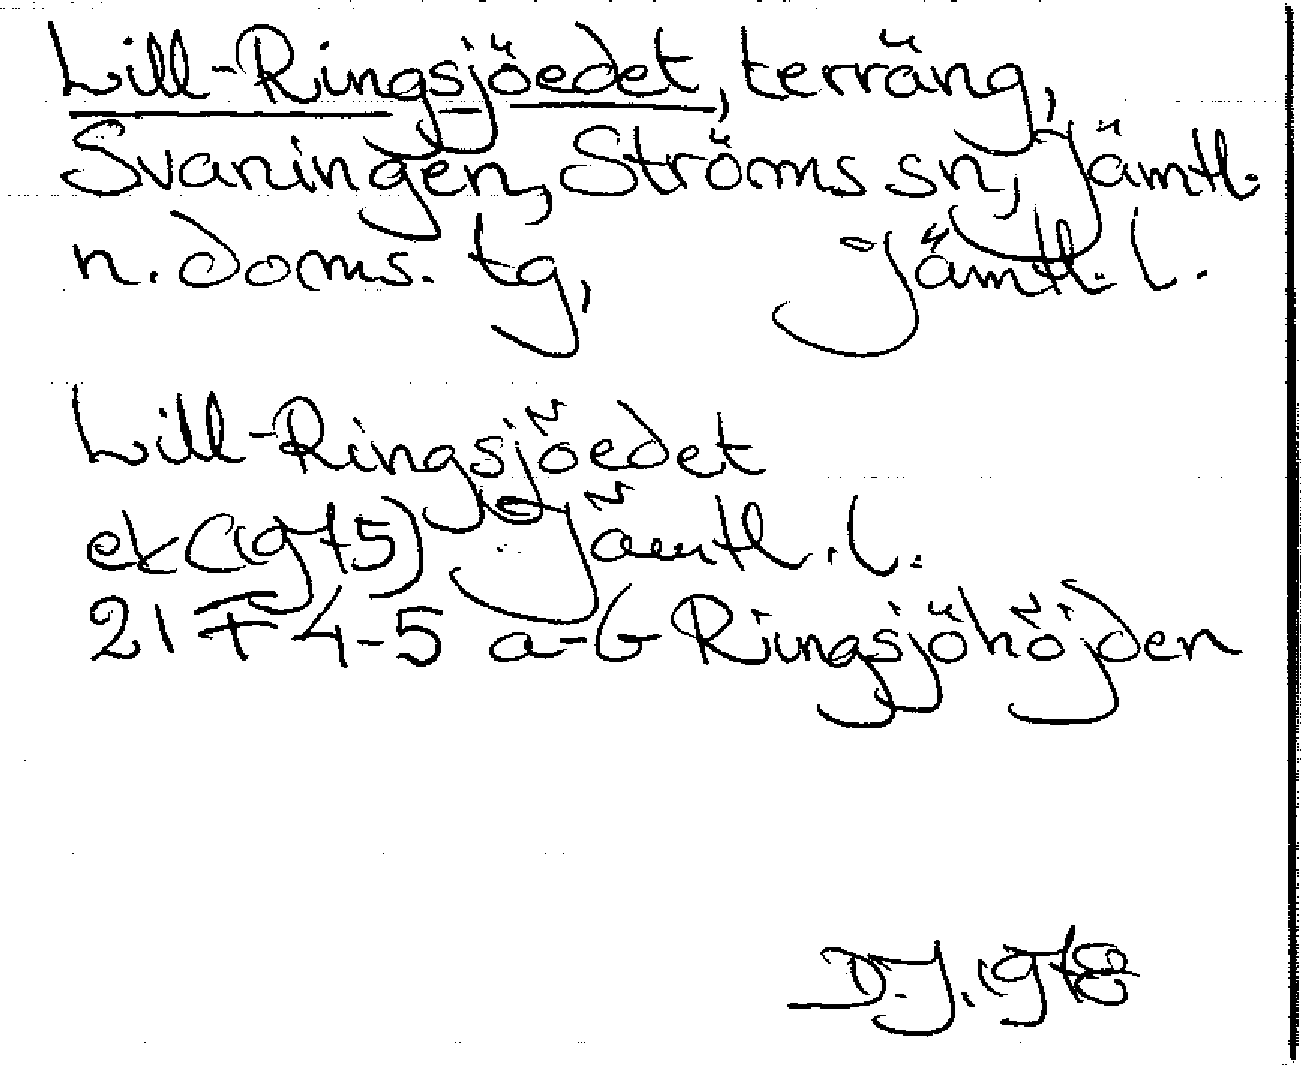 Lill-Ringsjöedet, terräng,
Svaningen, Ströms sn, Jämtl.
n. doms. tg, Jämtl. l.
Lill-Ringsjöedet
ek (1975) Jämtl. l.
21 F 4-5 a-b Ringsjöhöjden
D.J. 1978